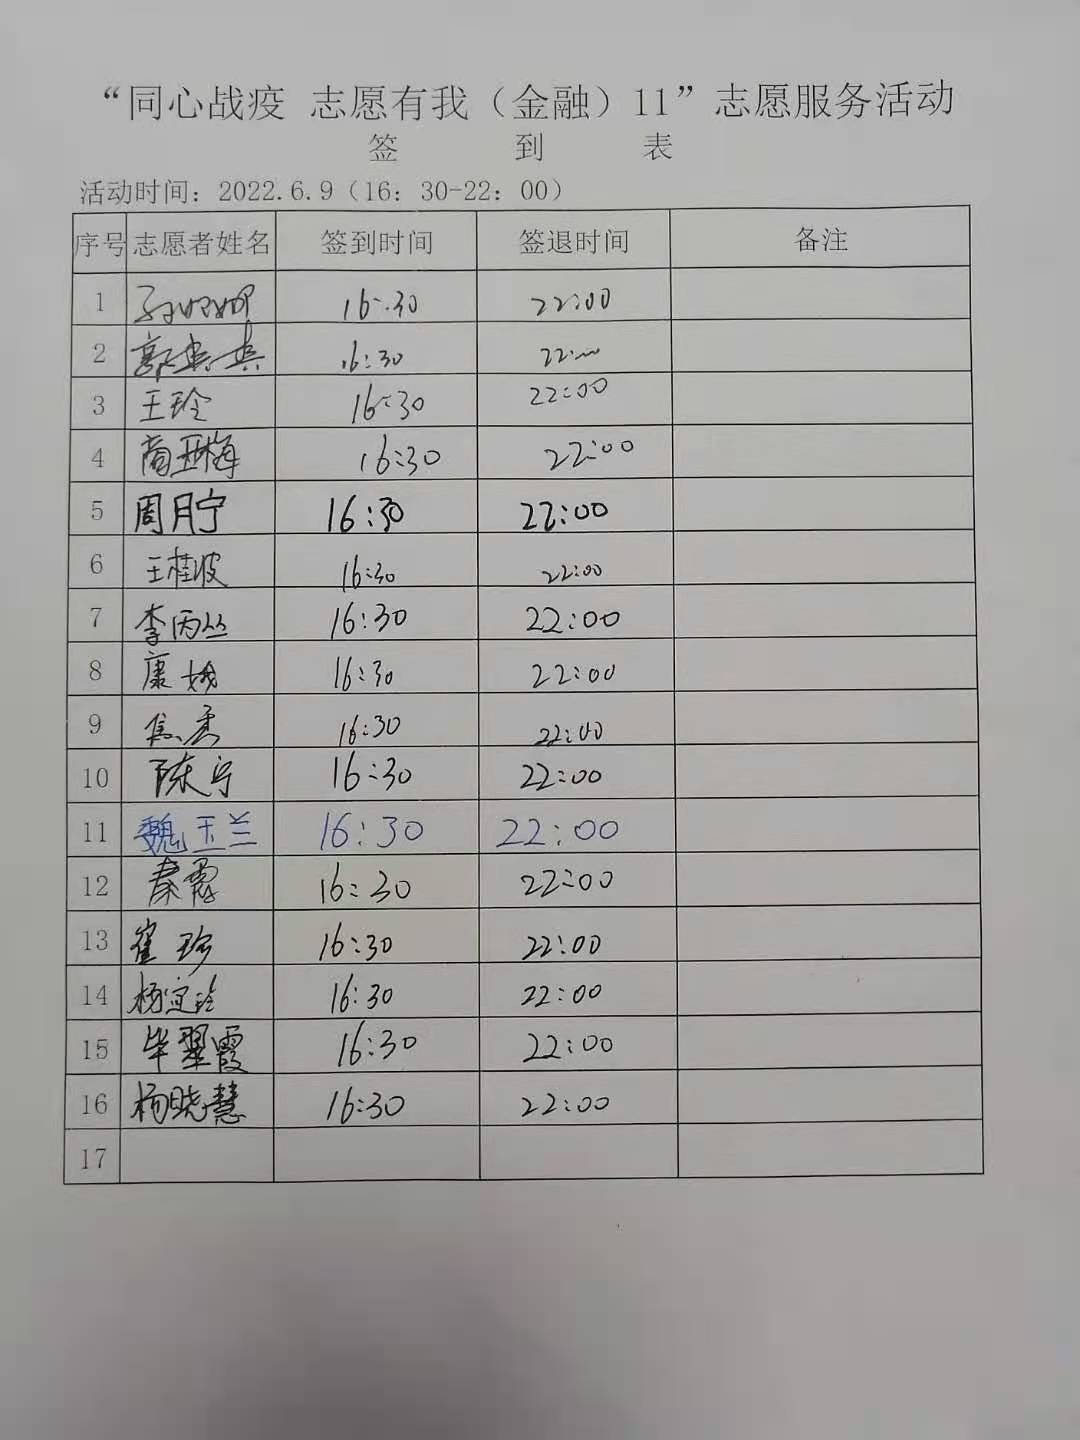 “同心战疫 志愿有我（金融）11”志愿服务活动
签 到 表
活动时间：2022.6.9（16：30-22：00）
序号 志愿者姓名 签到时间 签退时间 备注
1 16:30 22:00
2 16:30 22:00
3 王玲 16:30 22:00
4 商玉梅 16:30 22:00
5 周月宁 16:30 22:00
6 王桂波 16:30 22:00
7 李丙丛 16:30 22:00
8 康娥 16:30 22:00
9 16:30 22:00
10 陈宁 16:30 22:00
11 魏玉兰 16:30 22:00
12 秦霞 16:30 22:00
13 崔珍 16:30 22:00
14 杨宝玲 16:30 22:00
15 毕翠霞 16:30 22:00
16 杨晓慧 16:30 22:00
17